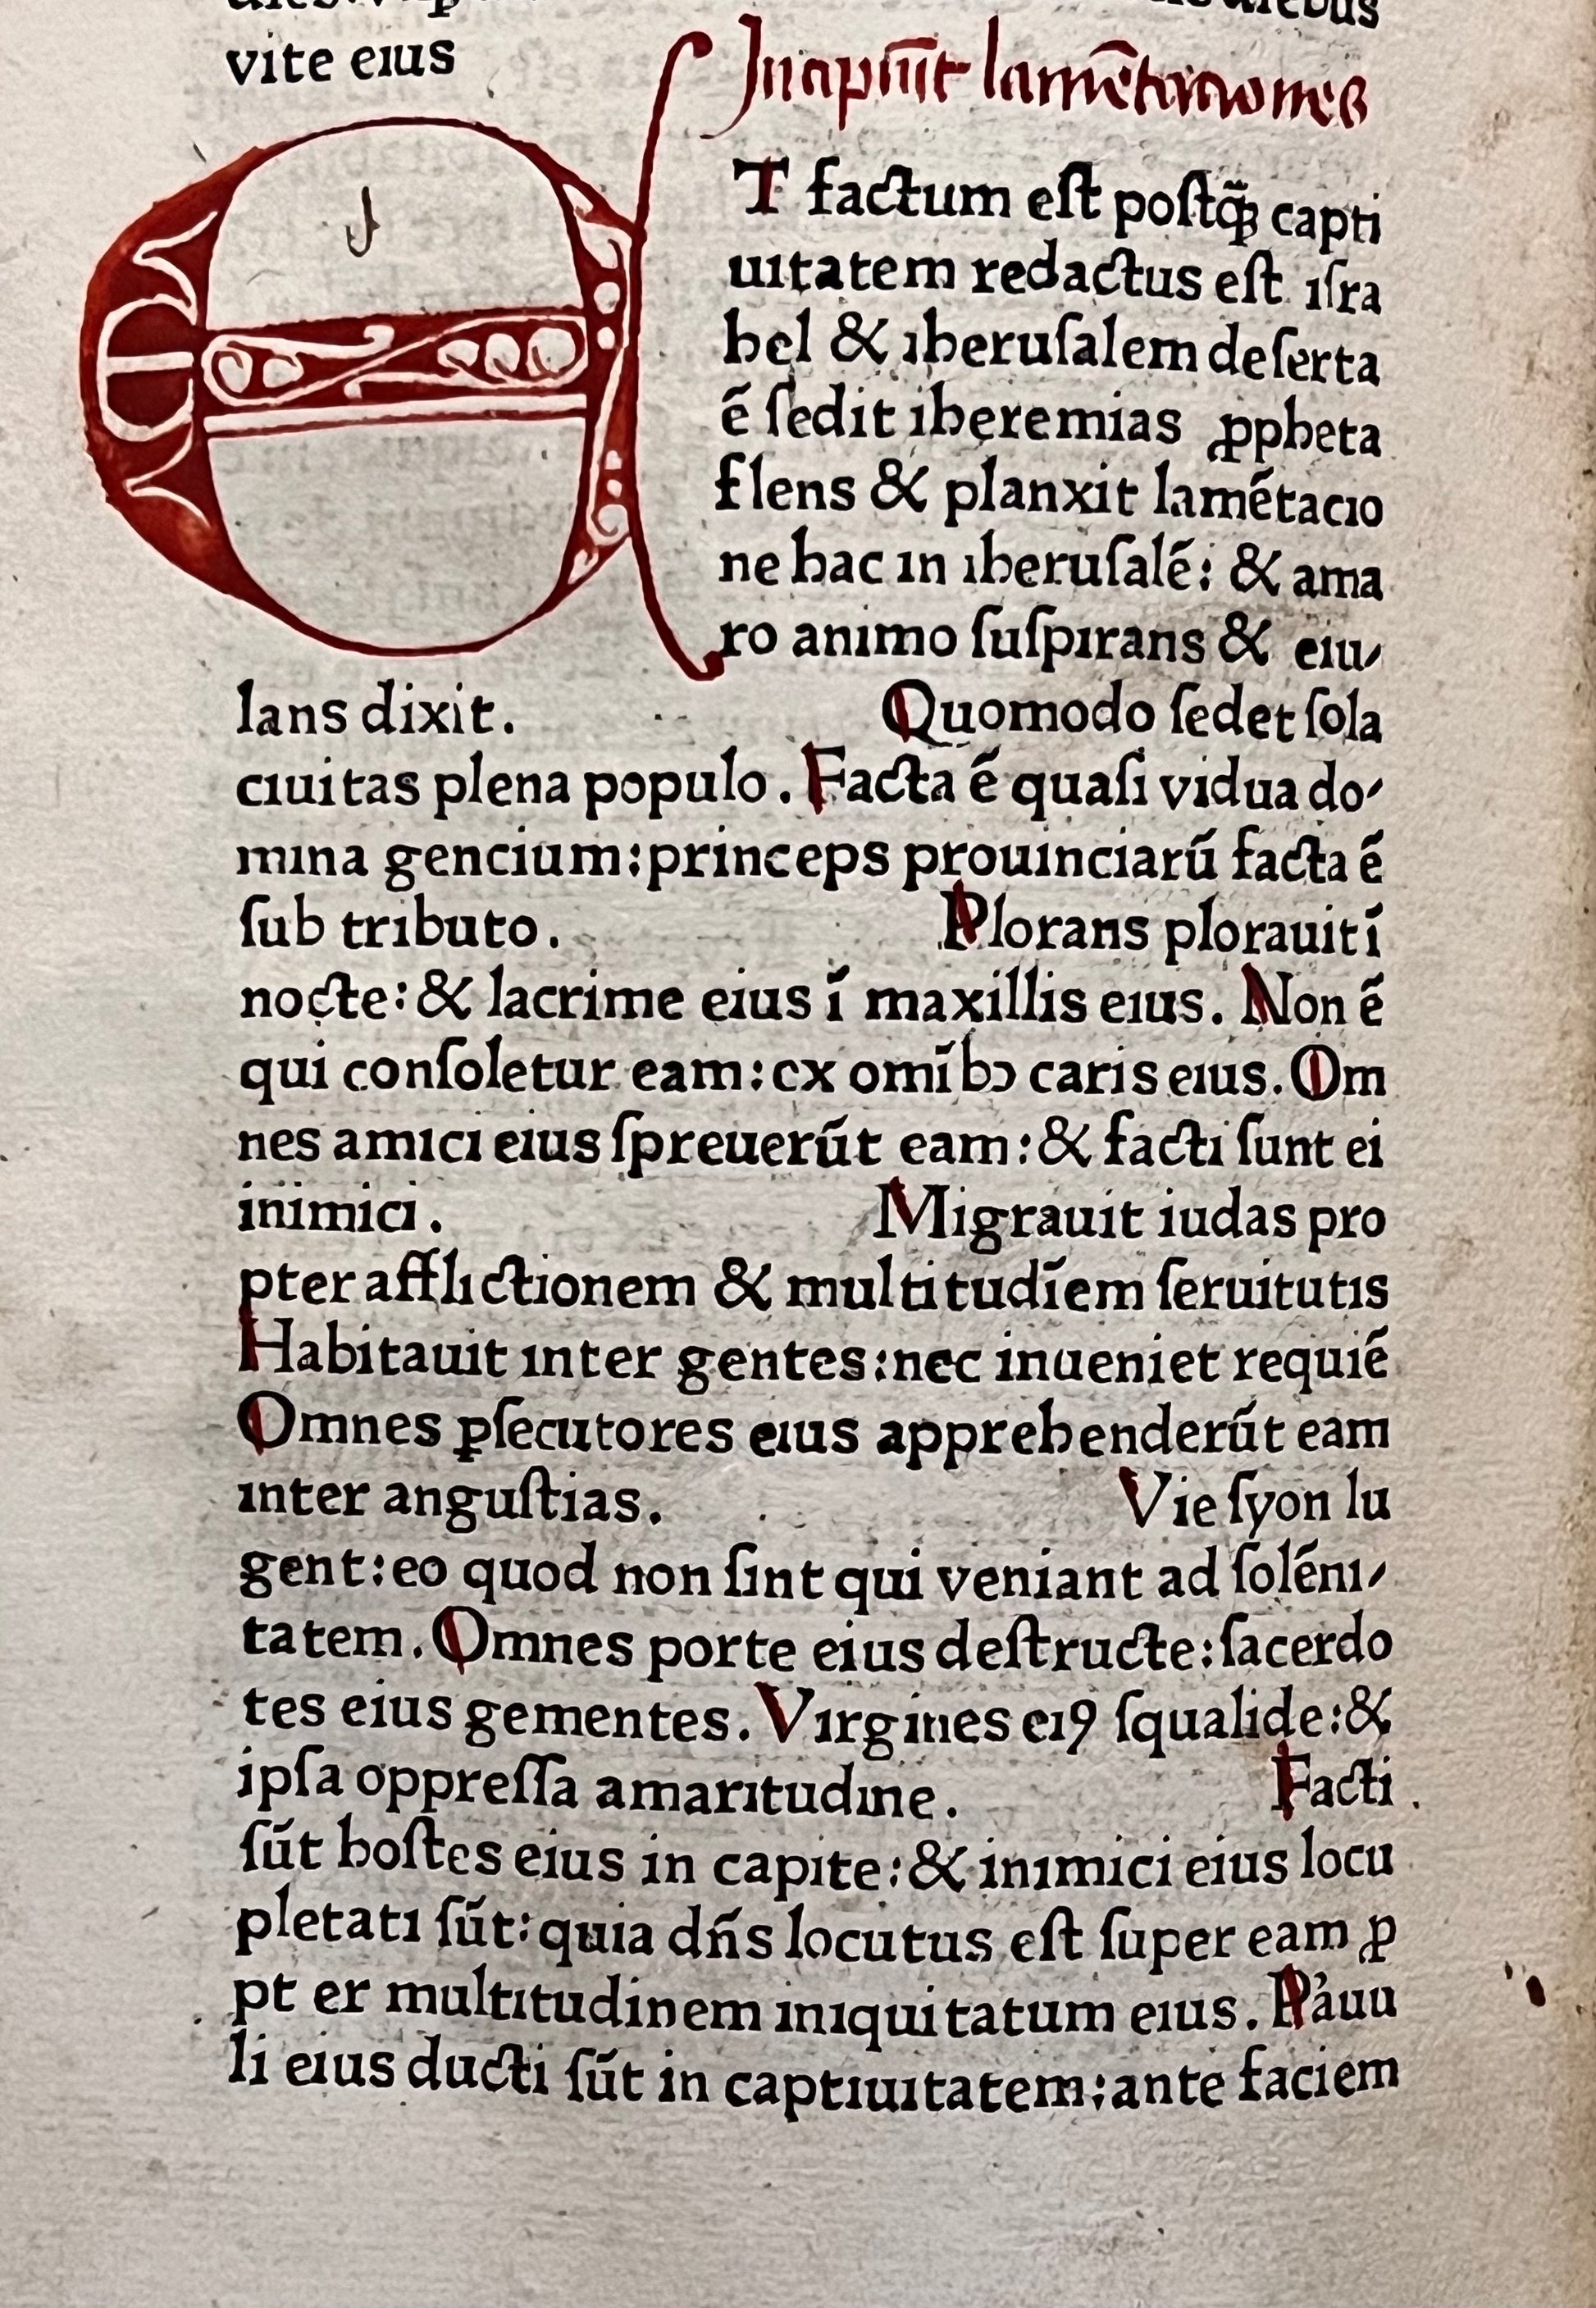 vite eius
Incipiūt lamētaciones
ET factum eſt poſtq̃ꝫ capti
uitatem redactus eſt iſra
hel & iheruſalem deſerta
ē ſedit iheremias ꝓpheta
flens & planxit lamētacio
ne hac in iheruſalē: & ama
ro animo ſuſpirans & eiu⸗
lans dixit. Quomodo ſedet ſola
ciuitas plena populo. Facta ē quaſi vidua do⸗
mina gencium: princeps prouinciarū facta ē
ſub tributo. Plorans plorauit ī
nocte: & lacrime eius ī maxillis eius. Non ē
qui conſoletur eam: ex omībꝰ caris eius. Om
nes amici eius ſpreuerūt eam: & facti ſunt ei
inimici. Migrauit iudas pro
pter afflictionem & multitudīem ſeruitutis
Habitauit inter gentes: nec inueniet requiē
Omnes ꝑſecutores eius apprehenderūt eam
inter anguſtias. Vie ſyon lu
gent: eo quod non ſint qui veniant ad ſolēni⸗
tatem. Omnes porte eius deſtructe: ſacerdo
tes eius gementes. Virgines eiꝰ ſqualide: &
ipſa oppreſſa amaritudine. Facti
ſūt hoſtes eius in capite: & inimici eius locu
pletati ſūt: quia dn̄s locutus eſt ſuper eam ꝓ
pt er multitudinem iniquitatum eius. Pàuu
li eius ducti ſūt in captiuitatem: ante faciem